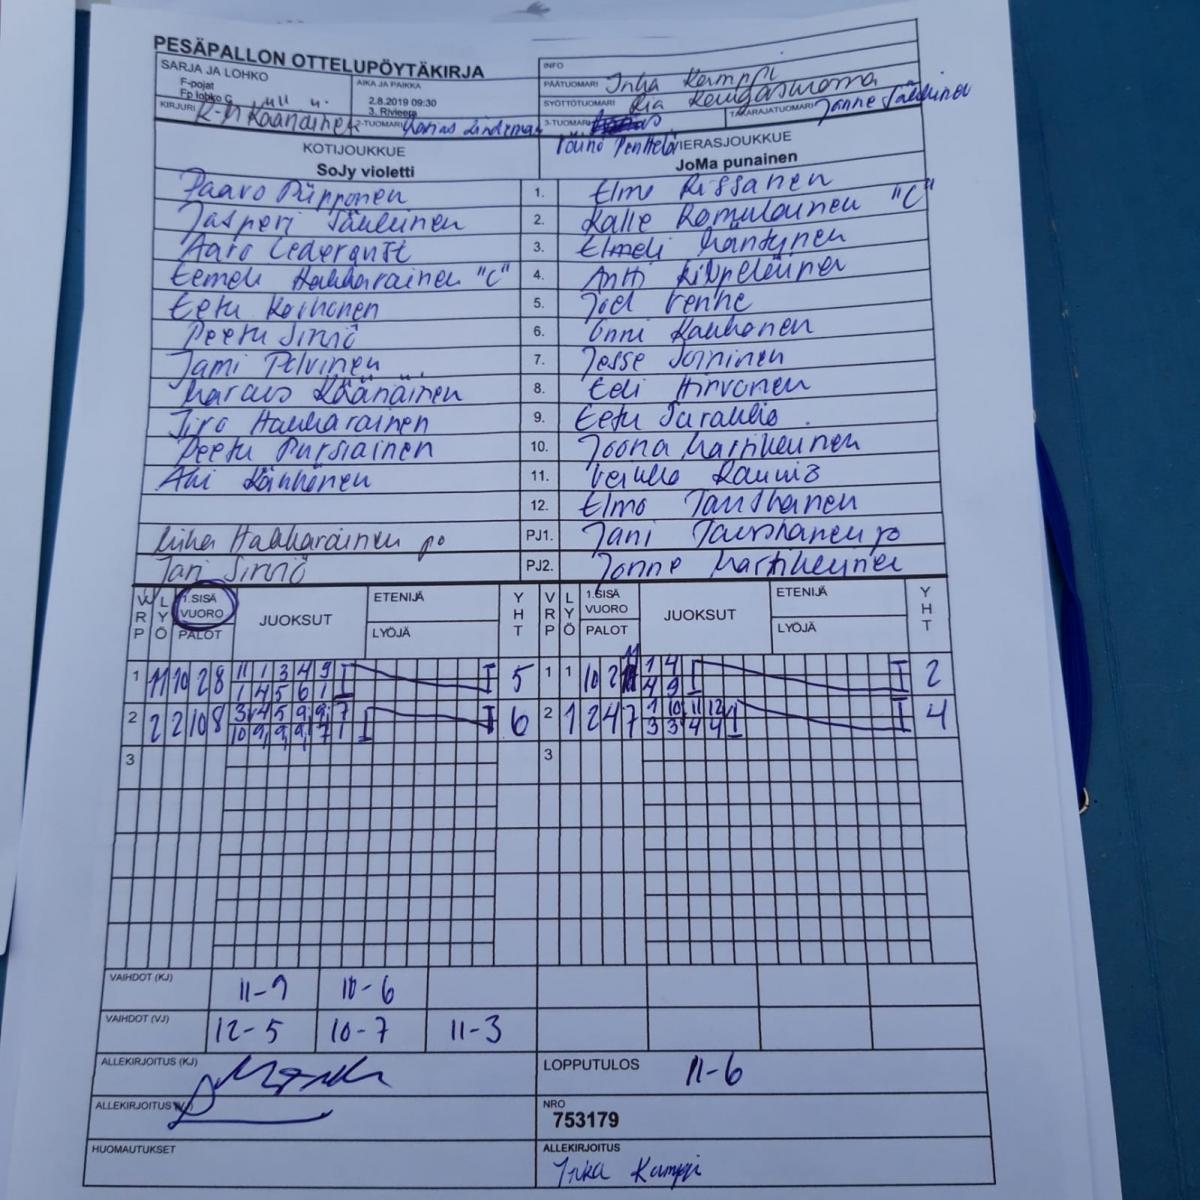 PESÄPALLON OTTELUPÖYTÄKIRJA
SARJA JA LOHKO
F-pojat
Fp lohko C
AIKA JA PAIKKA
2.8.2019 09:30
3. Riviera
INFO
PÄÄTUOMARI Inka Kamppi
SYÖTTÖTUOMARI Ria
TAKARAJATUOMARI Jonne
KIRJURI
2-TUOMARI
3-TUOMARI
Väinö Penttelä
KOTIJOUKKUE
SoJy violetti
VIERASJOUKKUE
JoMa punainen
Paavo Piipponen 1. Elmo Rissanen
Jasperi 2. Kalle Romulainen "C"
Aaro Cederqvist 3. Elmeli Mäntynen
Eemeli Hakkarainen "C" 4. Antti Kilpeläinen
Eetu Korhonen 5. Joel Venhe
Peetu Simiö 6. Onni Kauhanen
Jami Pelvinen 7. Jesse Soininen
Marcus Käänäinen 8. Eeli Hirvonen
Jiro Hakkarainen 9. Eetu
Peetu Pursiainen 10. Joona Martikainen
11. Veikko
12. Elmo Tanskanen
Miha Hakkarainen po PJ1. Jani Tanskanen po
Jari Simiö PJ2. Jonne Martikainen
VRP LYÖ 1.SISÄ VUORO PALOT JUOKSUT ETENIJÄ LYÖJÄ YHT VRP LYÖ 1.SISÄ VUORO PALOT JUOKSUT ETENIJÄ LYÖJÄ YHT
1 11 10 2 8 11 1 3 4 9 5 1 1 1 10 2 11 1 4 2
1 4 5 6 1 4 9
2 2 2 10 8 3 4 5 9 9 7 6 2 1 2 4 7 1 10 11 12 4
10 9 9 9 7 1 3 3 4 4
3 3
VAIHDOT (KJ) 11-9 10-6
VAIHDOT (VJ) 12-5 10-7 11-3
ALLEKIRJOITUS (KJ)
LOPPUTULOS 11-6
ALLEKIRJOITUS
NRO
753179
HUOMAUTUKSET
ALLEKIRJOITUS
Inka Kamppi